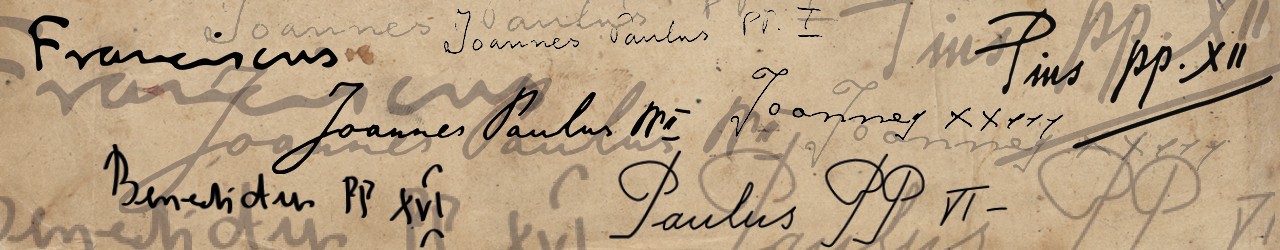 Franciscus
Joannes Paulus PP. I
Pius pp. XII
Joannes Paulus PP II
Joannes XXIII
Benedictus PP XVI
Paulus PP VI